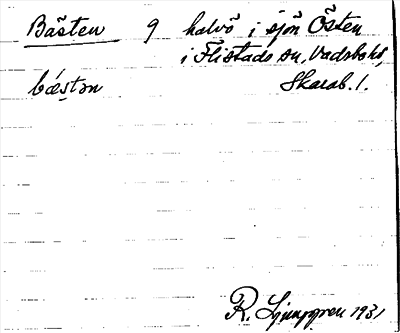 Bästen 9 halvö i sjön Östen
i Flistads sn, Vadsbohd,
bǽstən Skarab. l.
R. Ljunggren 1931